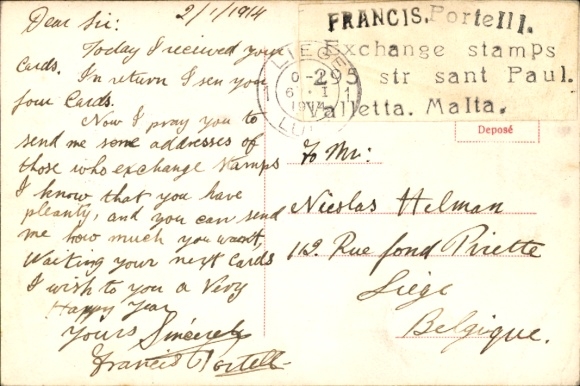 2/1/1914
Dear Sir:
Today I received your
Cards.
In return I sen you
four Cards.
Now I pray you to
send me some addresses of
those who exchange stamps
I know that you have
pleanty, and you can send
me how much you want,
Waiting your next Cards
I wish to you a Very
Happy Year
Yours Sincerely
Francis Portelli
FRANCIS. Portelli.
Exchange stamps
295 str sant Paul.
Valletta. Malta.
LIEGE
1 1
1914
Deposé
To Mr:
Nicolas Helman
112. Rue fond Pirette
Liége
Belgique.